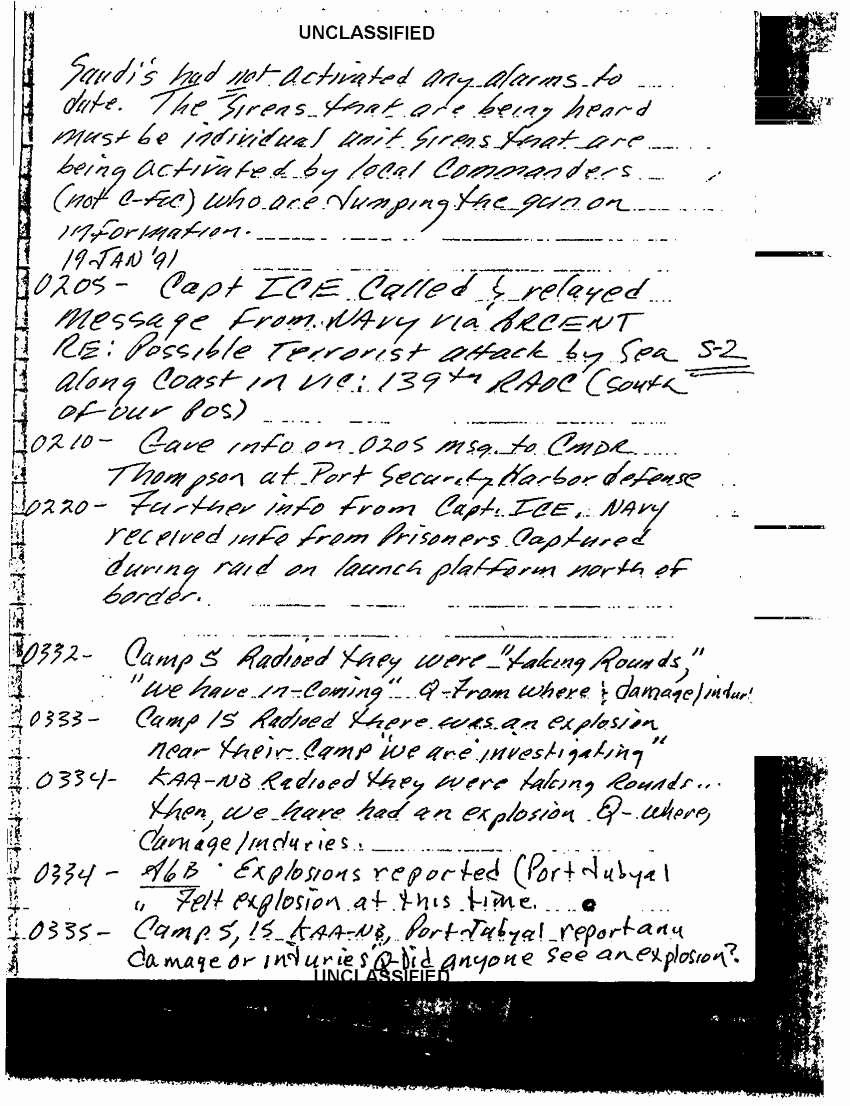 UNCLASSIFIED
Saudi's had not activated any alarms to
date. The sirens that are being heard
must be individual unit sirens that are
being activated by local Commanders
(not C-Fec) who are Jumping the gun on
information.
19 JAN '91
0205 - Capt ICE Called & relayed
Message From NAvy via ARCENT
RE: Possible Terrorist attack by Sea S-2
along Coast in vic: 139th RAOC (South
of our Pos)
0210 - Gave info on 0205 msg. to CMDR
Thompson at Port Security Harbor defense
0220 - Further info from Capt. ICE, NAVy
received info from Prisoners Captured
during raid on launch platform north of
border.
0332 - Camp 5 Radioed they were "taking Rounds,"
"we have in-Coming" Q-From where & damage/indur'
0333 - Camp 15 Radioed there was an explosion
near their Camp "we are investigating"
0334 - KAA-NB Radioed they were taking Rounds...
then, we have had an explosion Q- where,
Damage/induries.
0334 - AGB · Explosions reported (Port Jubyal
" Felt explosion at this time.
0335 - Camp 5, 15, KAA-NB, Port-Jubyal report any
damage or induries Q-Did anyone see an explosion?
UNCLASSIFIED